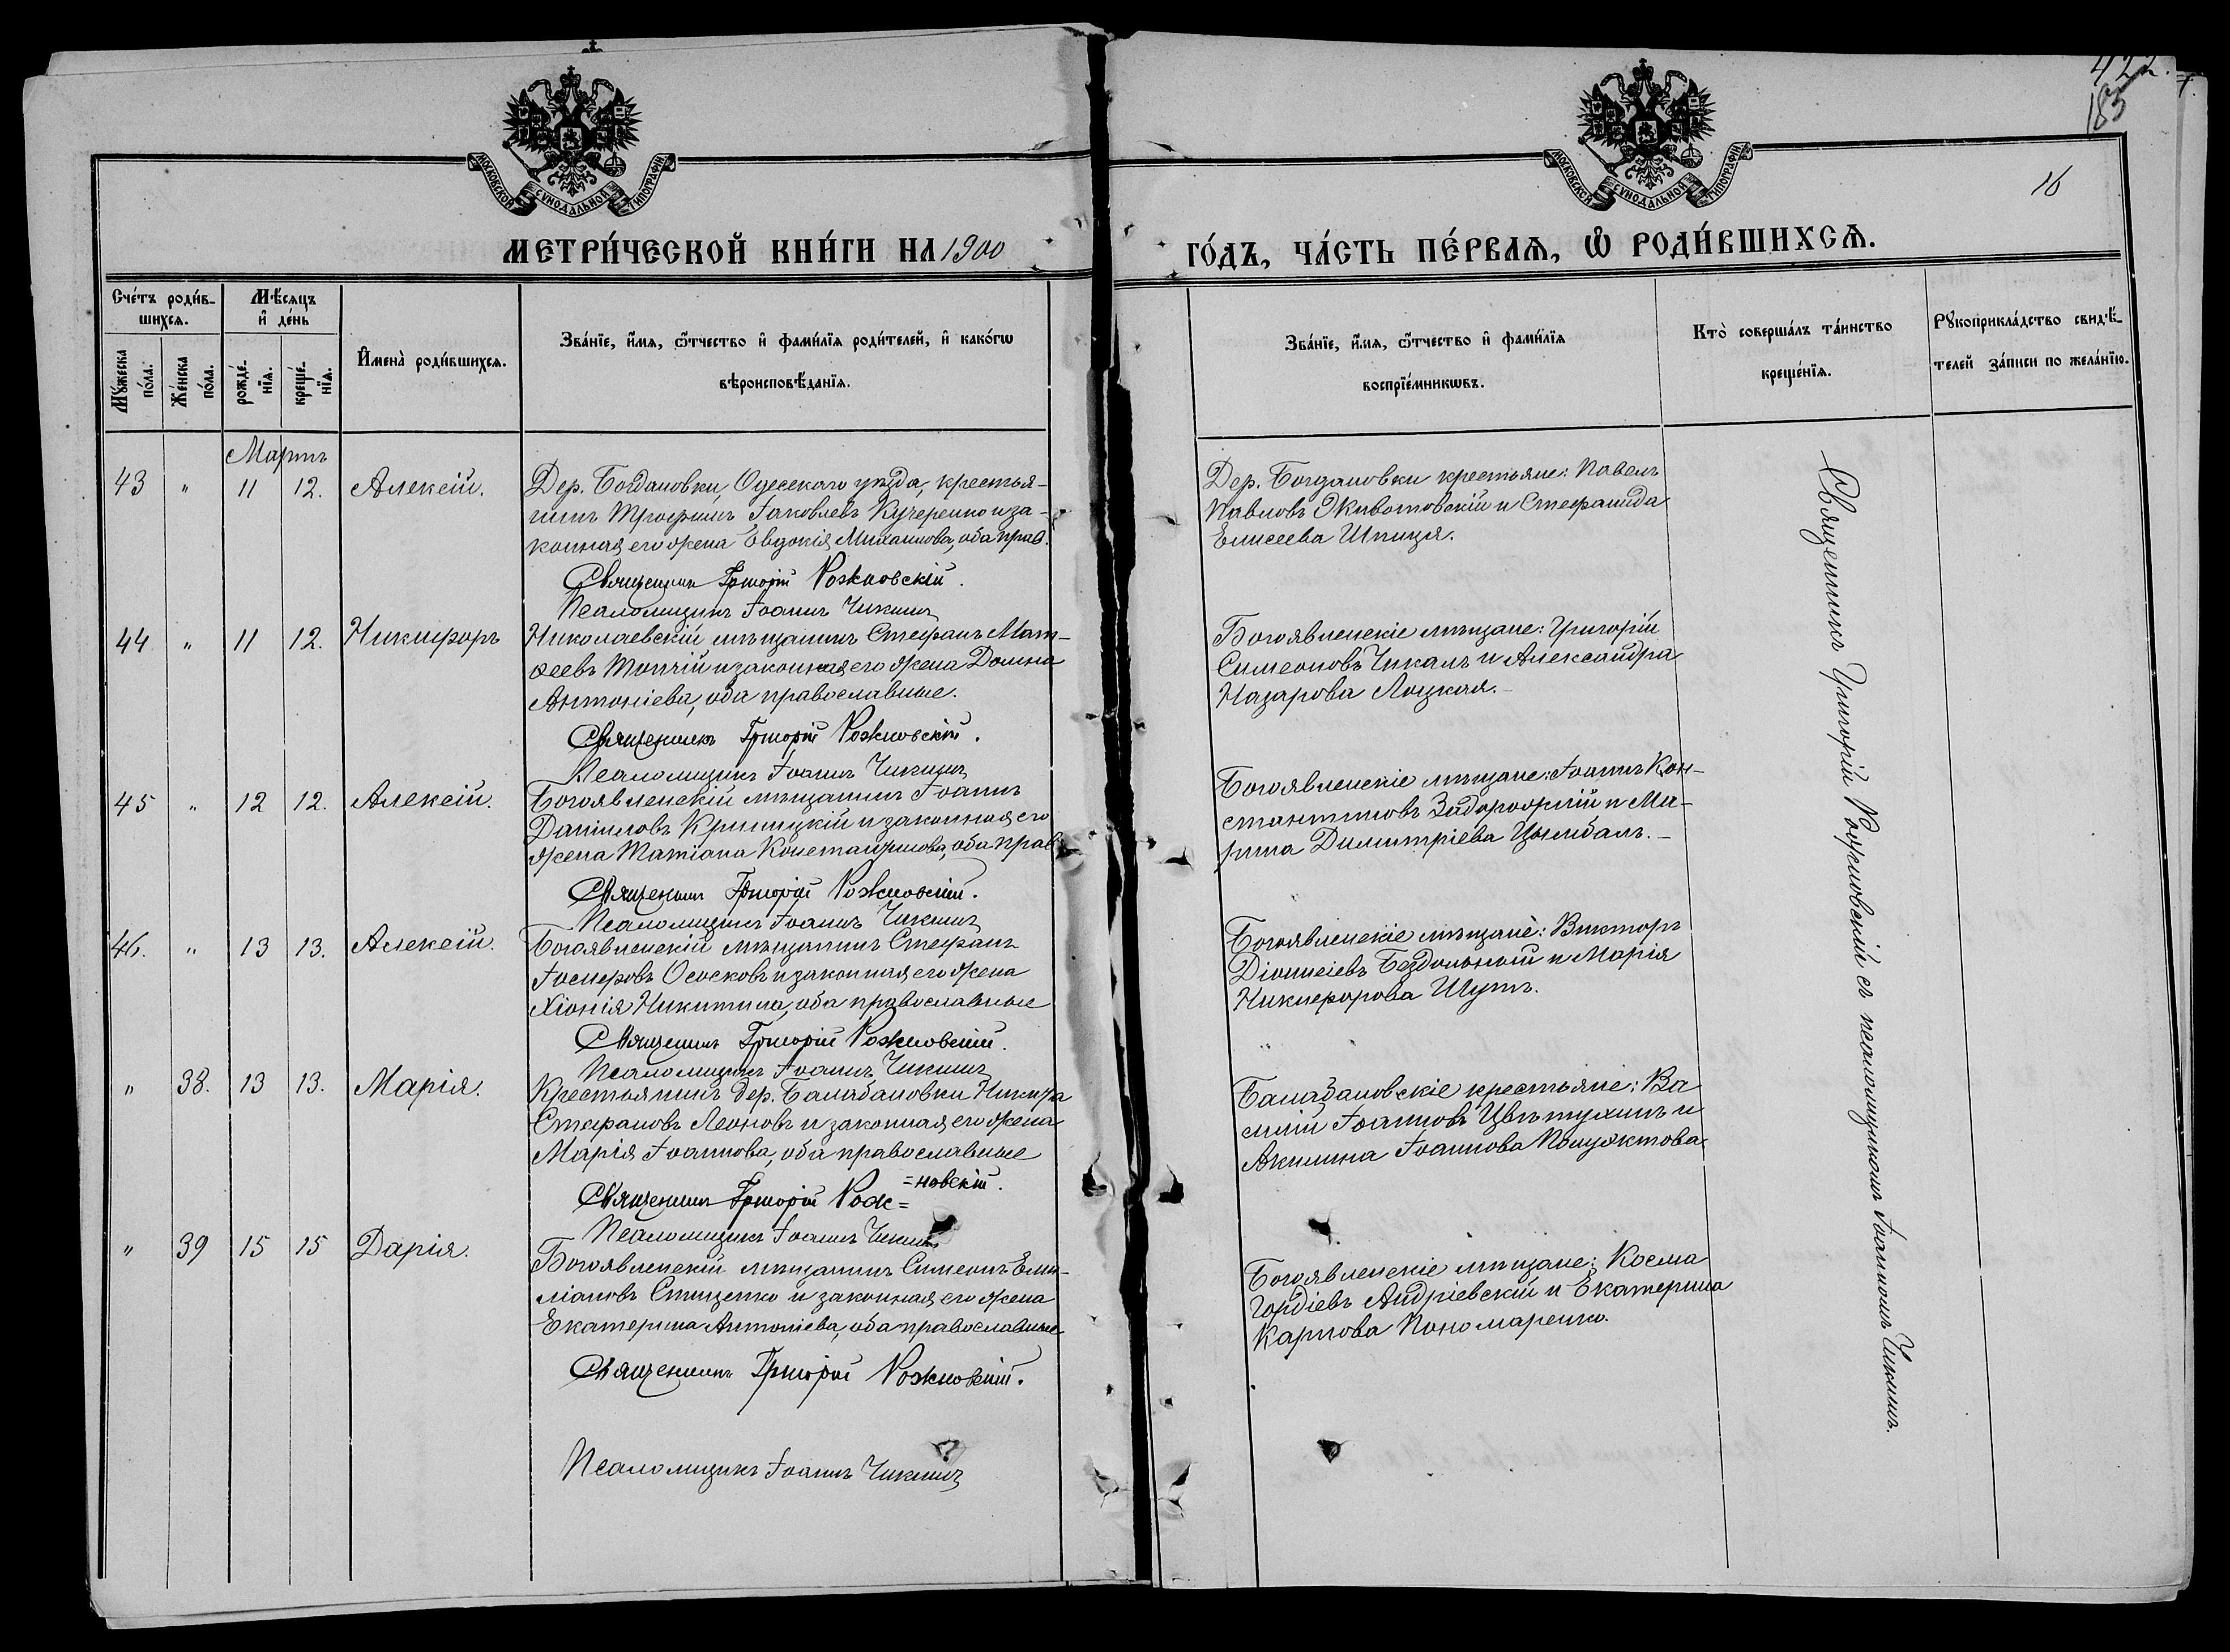 422.
183
16
МОСКОВСКОЙ СУНОДАЛЬНОЙ ТИПОГРАФІИ
МОСКОВСКОЙ СУНОДАЛЬНОЙ ТИПОГРАФІИ
МЕТРИ́ЧЕСКОЙ КНИ́ГИ НА 1900
ГО́ДЪ, ЧА́СТЬ ПЕ́РВАѦ, Ѽ РОДИ́ВШИХСѦ.
Сче́тъ роди́в-
шихсѧ.
Мѣ́сѧцъ
и҆ де́нь
Мꙋ́жеска
по́ла.
Же́нска
по́ла.
рожде́-
нїѧ.
креще́-
нїѧ.
И҆мена̀ роди́вшихсѧ.
Зва́нїе, и҆́мѧ, ѻ҆́тчество и҆ фами́лїѧ роди́телей, и҆ како́гѡ
вѣроисповѣ́данїѧ.
Зва́нїе, и҆́мѧ, ѻ҆́тчество и҆ фами́лїѧ
воспрїе́мникѡвъ.
Кто̀ соверша́лъ та́инство
креще́нїѧ.
Рꙋкоприкла́дство свидѣ́-
телей за́писи по жела́нїю.
Мартъ
43 " 11 12. Алексій.
Дер. Богдановки, Одесскаго уѣзда, крестья-
нинъ Трофимъ Іаковлевъ Кучеренко и за-
конная его жена Евдокія Михаилова, оба прав.
Священникъ Григорій Рожновскій.
Псаломщикъ Іоаннъ Чикинъ
Дер. Богдановки крестьяне: Павелъ
Павловъ Животовскій и Стефанида
Елисеева Шпиця.
44 " 11 12. Никифоръ
Николаевскій мѣщанинъ Стефанъ Мат-
ѳеевъ Топчій и законная его жена Домна
Антоніева, оба православные.
Священникъ Григорій Рожновскій.
Псаломщикъ Іоаннъ Чикинъ
Богоявленскіе мѣщане: Григорій
Симеоновъ Чикалъ и Александра
Назарова Лоцкая.
45 " 12 12. Алексій.
Богоявленскій мѣщанинъ Іоаннъ
Даніиловъ Криницкій и законная его
жена Татіана Константинова, оба прав.
Священникъ Григорій Рожновскій.
Псаломщикъ Іоаннъ Чикинъ
Богоявленскіе мѣщане: Іоаннъ Кон-
стантиновъ Задорожній и Ма-
рина Димитріева Цымбалъ.
46. " 13 13. Алексій.
Богоявленскій мѣщанинъ Стефанъ
Іосифовъ Ососковъ и законная его жена
Хіонія Никитина, оба православные
Священникъ Григорій Рожновскій.
Псаломщикъ Іоаннъ Чикинъ
Богоявленскіе мѣщане: Викторъ
Діонисіевъ Бездольный и Марія
Никифорова Шутъ.
" 38. 13 13. Марія.
Крестьянинъ дер. Балабановки Никита
Стефановъ Леоновъ и законная его жена
Марія Іоаннова, оба православные
Священникъ Григорій Рож=
=новскій.
Псаломщикъ Іоаннъ Чикинъ
Балабановскіе крестьяне: Ва
силій Іоанновъ Цвѣтухинъ и
Акилина Іоаннова
" 39 15 15 Дарія.
Богоявленскій мѣщанинъ Симеонъ Еми-
ліановъ Стищенко и законная его жена
Екатерина Антоніева, оба православные
Священникъ Григорій Рожновскій.
Псаломщикъ Іоаннъ Чикинъ
Богоявленскіе мѣщане: Косма
Гордіевъ Андріевскій и Екатерина
Карпова Пономаренко.
Священникъ Григорій Рожновскій съ псаломщикомъ Іоанномъ Чикинымъ.